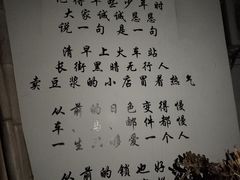 记得早些少年时
大家诚诚恳恳
说一句 是一句
清早上火车站
长街黑暗无行人
卖豆浆的小店冒着热气
从前的日色变得慢
车、马、邮件都慢
一生只够爱一个人
从前的锁也好